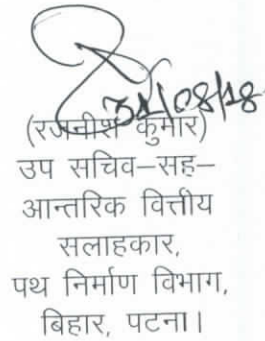 31/08/18
(रजनीश कुमार)
उप सचिव–सह–
आन्तरिक वित्तीय
सलाहकार,
पथ निर्माण विभाग,
बिहार, पटना।